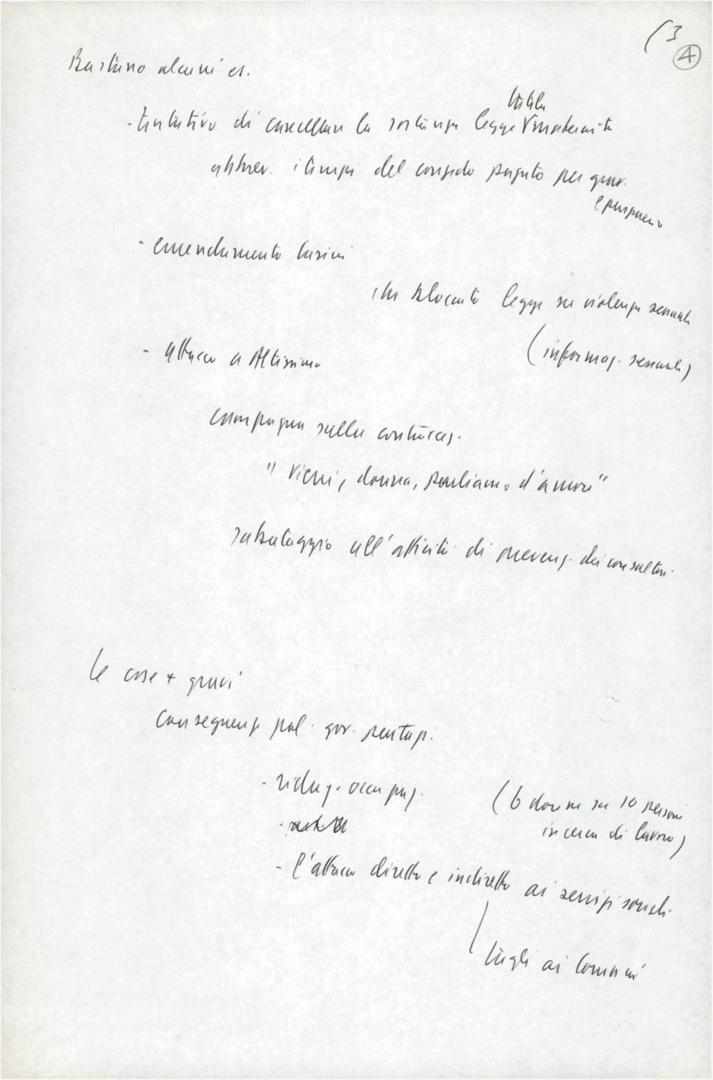 (3
4
Bastano alcuni es.
- tentativo di cancellare la sostanza legge maternità
tutela
abbrev. i tempi del congedo pagato per grav.
e puerperio
- emendamento Casini
che bloccato legge su violenza sessuale
(informaz. sessuale)
- attacco a Altissimo
campagna sulla contracc.
"Vieni, donna, parliamo d'amore"
sabotaggio all'attività di prevenz. dei consultori
le cose + gravi
conseguenz pol. gov. pentap.
- riduz. occupaz.
(6 donne su 10 persone
in cerca di lavoro)
- l'attacco diretto e indiretto ai servizi sociali
tagli ai Comuni